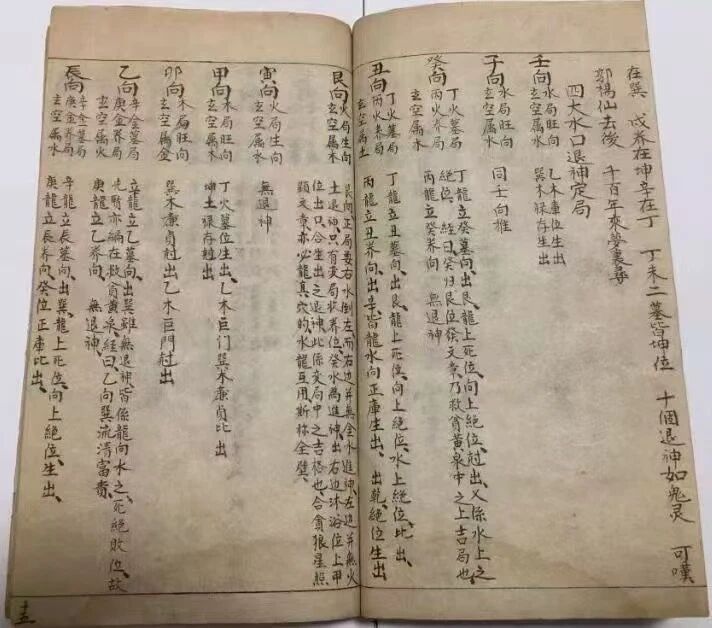 在巽 戍养在坤辛在丁 丁未二墓皆坤位 十個退神如鬼灵 可嘆
郭楊仙去後 千百年來夢裏尋
四大水口退神定局
壬向 水局旺向 玄空属水 乙木庫位出 巽木禄存生出
子向 水局旺向 玄空属水 同壬向推
癸向 丁火墓局 丙火养局 玄空属水 丁龍立癸墓向、出艮、龍上死位、向上絕位、尅出、又係水上之
絕位、經曰、癸归艮位發文章、乃救貧黃泉中之上吉局也、
丙龍立癸养向、無退神、
丑向 丁火墓局 丙火养局 玄空属土 丁龍立丑墓向、出艮、龍上死位、向上絕位、水上絕位、比出、
丙龍立丑养向、出皆龍水向正庫生出、出乾、絕位生出
艮向 火局生向 玄空属木 艮向正局要右水倒左、而右边并無金水進神、左边并無火
土退神、只有变局状养位癸水為進神、出右边沐浴位上甲
位出、只合生出之退神、此係变局中之吉格也、合貪狼星照
顕文章、亦必龍真穴的水龍互用、斯称全壁、
寅向 火局生向 玄空属水 無退神
甲向 木局旺向 玄空属木 丁火墓位生出、乙木巨门巽木廉貞比出
坤土禄存尅出、
卯向 木局旺向 玄空属金 巽木廉貞尅出、乙木巨門尅出
乙向 辛金墓局 庚金养局 玄空属火 立龍立乙墓向、出巽、雖無退神、皆係龍向水之死絕敗位、故
先賢亦編在救貧黃泉、經曰、乙向巽流清富貴、
庚龍立乙养向、無退神、
辰向 辛金墓局 庚金养局 玄空属水 辛龍立辰墓向、出巽、龍上死位、向上絕位、生出、
庚龍立辰养向、癸位正庫比出、
十五